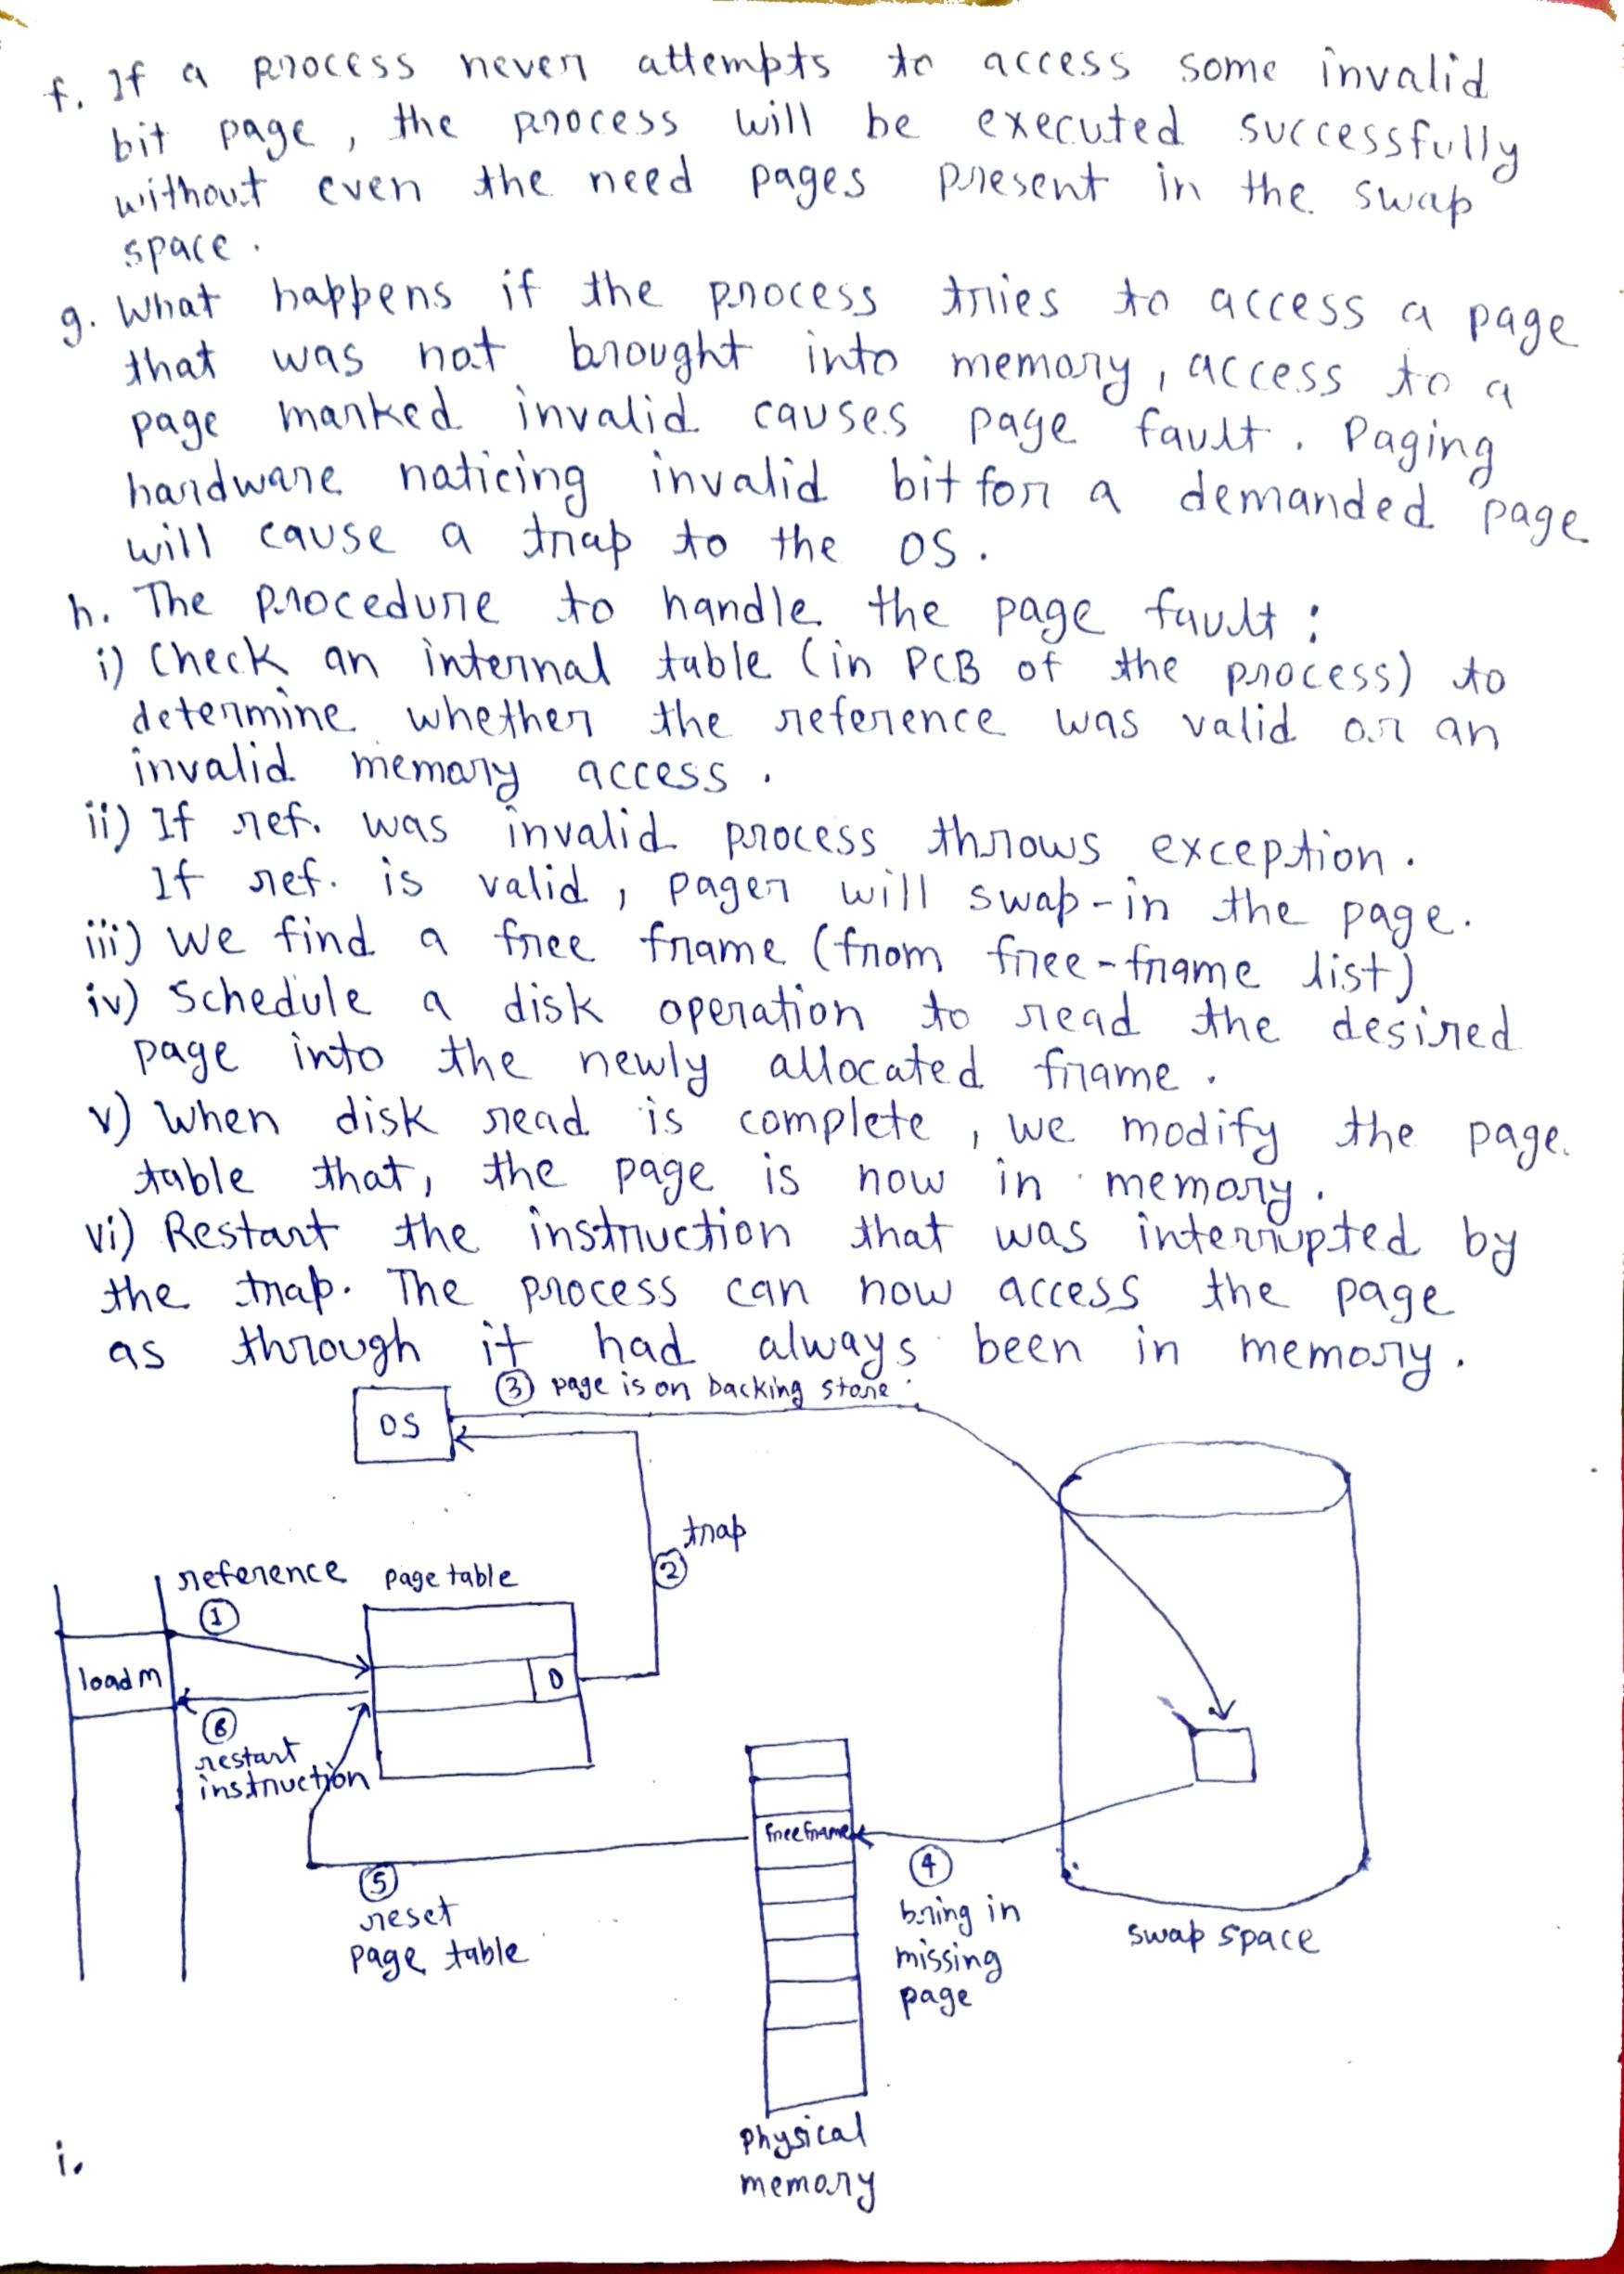 f. If a process never attempts to access some invalid
bit page, the process will be executed successfully
without even the need pages present in the swap
space.
g. What happens if the process tries to access a page
that was not brought into memory, access to a
page marked invalid causes page fault. Paging
hardware noticing invalid bit for a demanded page
will cause a trap to the OS.
h. The procedure to handle the page fault:
i) Check an internal table (in PCB of the process) to
determine whether the reference was valid or an
invalid memory access.
ii) If ref. was invalid process throws exception.
If ref. is valid, pager will swap-in the page.
iii) We find a free frame (from free-frame list)
iv) Schedule a disk operation to read the desired
page into the newly allocated frame.
v) When disk read is complete, we modify the page
table that, the page is now in memory.
vi) Restart the instruction that was interrupted by
the trap. The process can now access the page
as through it had always been in memory.
③ page is on backing store
OS
trap
②
reference
page table
①
load m
0
⑥
restart
instruction
free frame
④
bring in
missing
page
⑤
reset
page table
swap space
physical
memory
i.